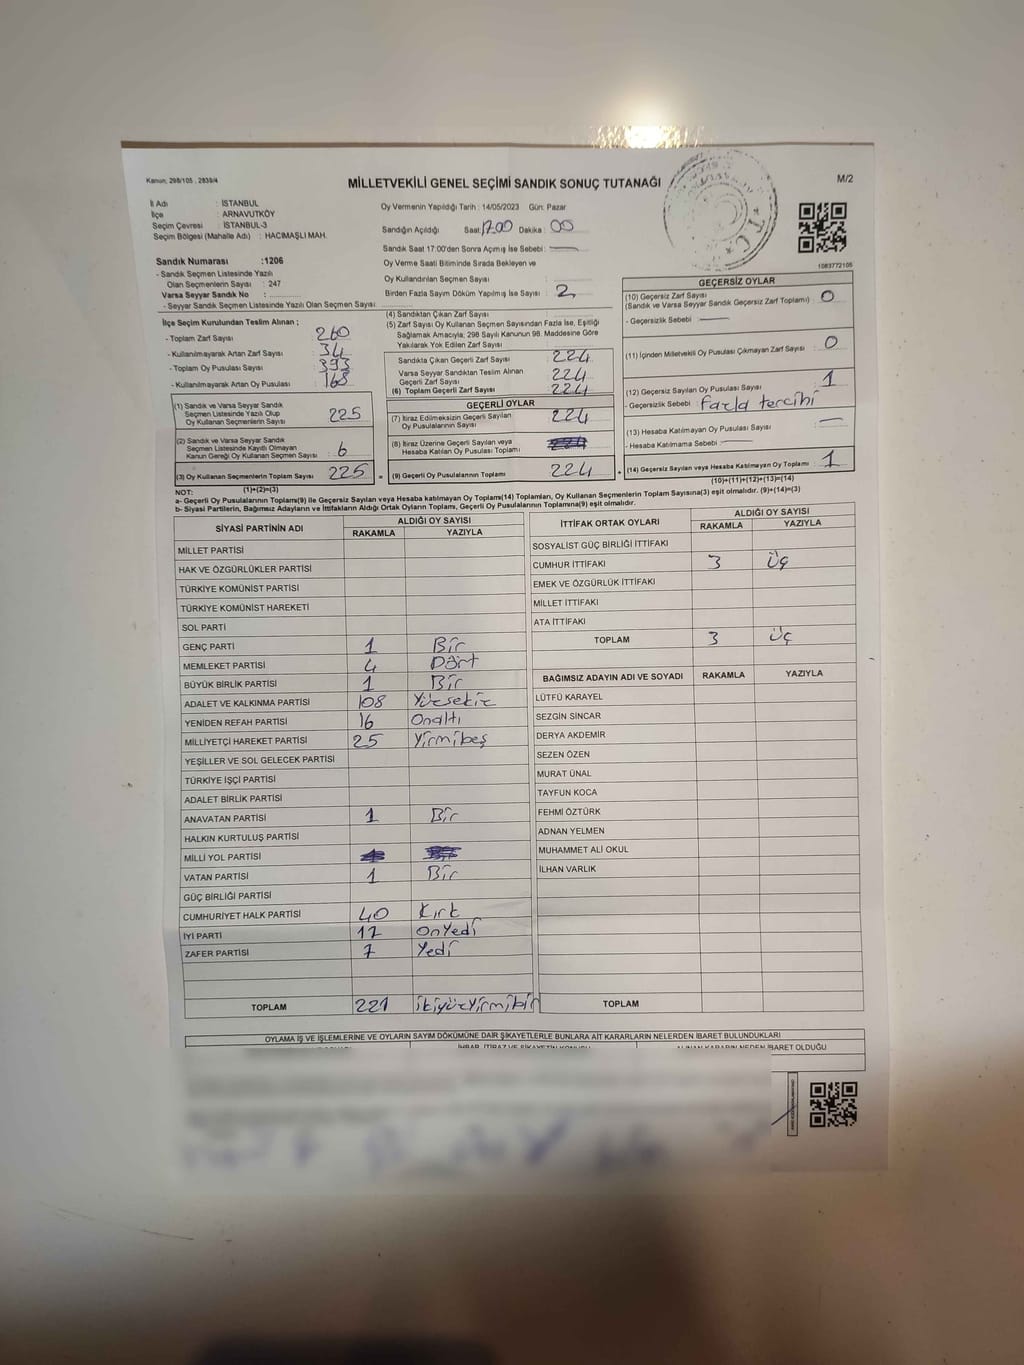 Kanun: 298/105 , 2839/4
MİLLETVEKİLİ GENEL SEÇİMİ SANDIK SONUÇ TUTANAĞI
M/2
İl Adı : İSTANBUL
İlçe : ARNAVUTKÖY
Seçim Çevresi : İSTANBUL-3
Seçim Bölgesi (Mahalle Adı) : HACIMAŞLI MAH.
Oy Vermenin Yapıldığı Tarih : 14/05/2023 Gün: Pazar
Sandığın Açıldığı Saat: 17.00 Dakika : 00
Sandık Saat 17:00'den Sonra Açılmış İse Sebebi :
Oy Verme Saati Bitiminde Sırada Bekleyen ve
Oy Kullandırılan Seçmen Sayısı :
Birden Fazla Sayım Döküm Yapılmış İse Sayısı : 2
1083772105
Sandık Numarası :1206
- Sandık Seçmen Listesinde Yazılı
Olan Seçmenlerin Sayısı : 247
Varsa Seyyar Sandık No :
- Seyyar Sandık Seçmen Listesinde Yazılı Olan Seçmen Sayısı:
İlçe Seçim Kurulundan Teslim Alınan ;
- Toplam Zarf Sayısı : 260
- Kullanılmayarak Artan Zarf Sayısı : 34
- Toplam Oy Pusulası Sayısı : 393
- Kullanılmayarak Artan Oy Pusulası : 168
(1) Sandık ve Varsa Seyyar Sandık
Seçmen Listesinde Yazılı Olup
Oy Kullanan Seçmen Sayısı : 225
(2) Sandık ve Varsa Seyyar Sandık
Seçmen Listesinde Kayıtlı Olmayan
Kanun Gereği Oy Kullanan Seçmen Sayısı : 6
(3) Oy Kullanan Seçmenlerin Toplam Sayısı : 225
(1)+(2)=(3)
(4) Sandıktan Çıkan Zarf Sayısı :
(5) Zarf Sayısı Oy Kullanan Seçmen Sayısından Fazla İse, Eşitliği
Sağlamak Amacıyla; 298 Sayılı Kanunun 98. Maddesine Göre
Yakılarak Yok Edilen Zarf Sayısı :
Sandıkta Çıkan Geçerli Zarf Sayısı : 224
Varsa Seyyar Sandıktan Teslim Alınan
Geçerli Zarf Sayısı : 224
(6) Toplam Geçerli Zarf Sayısı : 224
GEÇERLİ OYLAR
(7) İtiraz Edilmeksizin Geçerli Sayılan
Oy Pusulasının Sayısı : 224
(8) İtiraz Üzerine Geçerli Sayılan veya
Hesaba Katılan Oy Pusulası Toplamı :
(9) Geçerli Oy Pusulalarının Toplamı : 224
GEÇERSİZ OYLAR
(10) Geçersiz Zarf Sayısı : 0
(Sandık ve Varsa Seyyar Sandık Geçersiz Zarf Toplamı)
- Geçersizlik Sebebi :
(11) İçinden Milletvekili Oy Pusulası Çıkmayan Zarf Sayısı : 0
(12) Geçersiz Sayılan Oy Pusulası Sayısı : 1
- Geçersizlik Sebebi : fazla tercihi
(13) Hesaba Katılmayan Oy Pusulası Sayısı :
- Hesaba Katılmama Sebebi :
(14) Geçersiz Sayılan veya Hesaba Katılmayan Oy Toplamı : 1
(10)+(11)+(12)+(13)=(14)
NOT:
a- Geçerli Oy Pusulalarının Toplamı(9) ile Geçersiz Sayılan veya Hesaba katılmayan Oy Toplamı(14) Toplamları, Oy Kullanan Seçmenlerin Toplam Sayısına(3) eşit olmalıdır. (9)+(14)=(3)
b- Siyasi Partilerin, Bağımsız Adayların ve İttifakların Aldığı Ortak Oyların Toplamı, Geçerli Oy Pusulalarının Toplamına(9) eşit olmalıdır.
SİYASİ PARTİNİN ADI ALDIĞI OY SAYISI
RAKAMLA YAZIYLA
MİLLET PARTİSİ
HAK VE ÖZGÜRLÜKLER PARTİSİ
TÜRKİYE KOMÜNİST PARTİSİ
TÜRKİYE KOMÜNİST HAREKETİ
SOL PARTİ
GENÇ PARTİ 1 Bir
MEMLEKET PARTİSİ 4 Dört
BÜYÜK BİRLİK PARTİSİ 1 Bir
ADALET VE KALKINMA PARTİSİ 108 Yüzsekiz
YENİDEN REFAH PARTİSİ 16 Onaltı
MİLLİYETÇİ HAREKET PARTİSİ 25 Yirmibeş
YEŞİLLER VE SOL GELECEK PARTİSİ
TÜRKİYE İŞÇİ PARTİSİ
ADALET BİRLİK PARTİSİ
ANAVATAN PARTİSİ 1 Bir
HALKIN KURTULUŞ PARTİSİ
MİLLİ YOL PARTİSİ
VATAN PARTİSİ 1 Bir
GÜÇ BİRLİĞİ PARTİSİ
CUMHURİYET HALK PARTİSİ 40 Kırk
İYİ PARTİ 17 OnYedi
ZAFER PARTİSİ 7 Yedi
TOPLAM 221 ikiyüzYirmibir
İTTİFAK ORTAK OYLARI ALDIĞI OY SAYISI
RAKAMLA YAZIYLA
SOSYALİST GÜÇ BİRLİĞİ İTTİFAKI
CUMHUR İTTİFAKI 3 Üç
EMEK VE ÖZGÜRLÜK İTTİFAKI
MİLLET İTTİFAKI
ATA İTTİFAKI
TOPLAM 3 Üç
BAĞIMSIZ ADAYIN ADI VE SOYADI RAKAMLA YAZIYLA
LÜTFÜ KARAYEL
SEZGİN SİNCAR
DERYA AKDEMİR
SEZEN ÖZEN
MURAT ÜNAL
TAYFUN KOCA
FEHMİ ÖZTÜRK
ADNAN YELMEN
MUHAMMET ALİ OKUL
İLHAN VARLIK
TOPLAM
OYLAMA İŞ VE İŞLEMLERİNE VE OYLARIN SAYIM DÖKÜMÜNE DAİR ŞİKAYETLERLE BUNLARA AİT KARARLARIN NELERDEN İBARET BULUNDUKLARI
İHBAR, İTİRAZ VE ŞİKAYETİN KONUSU ALINAN KARARIN NEDEN İBARET OLDUĞU